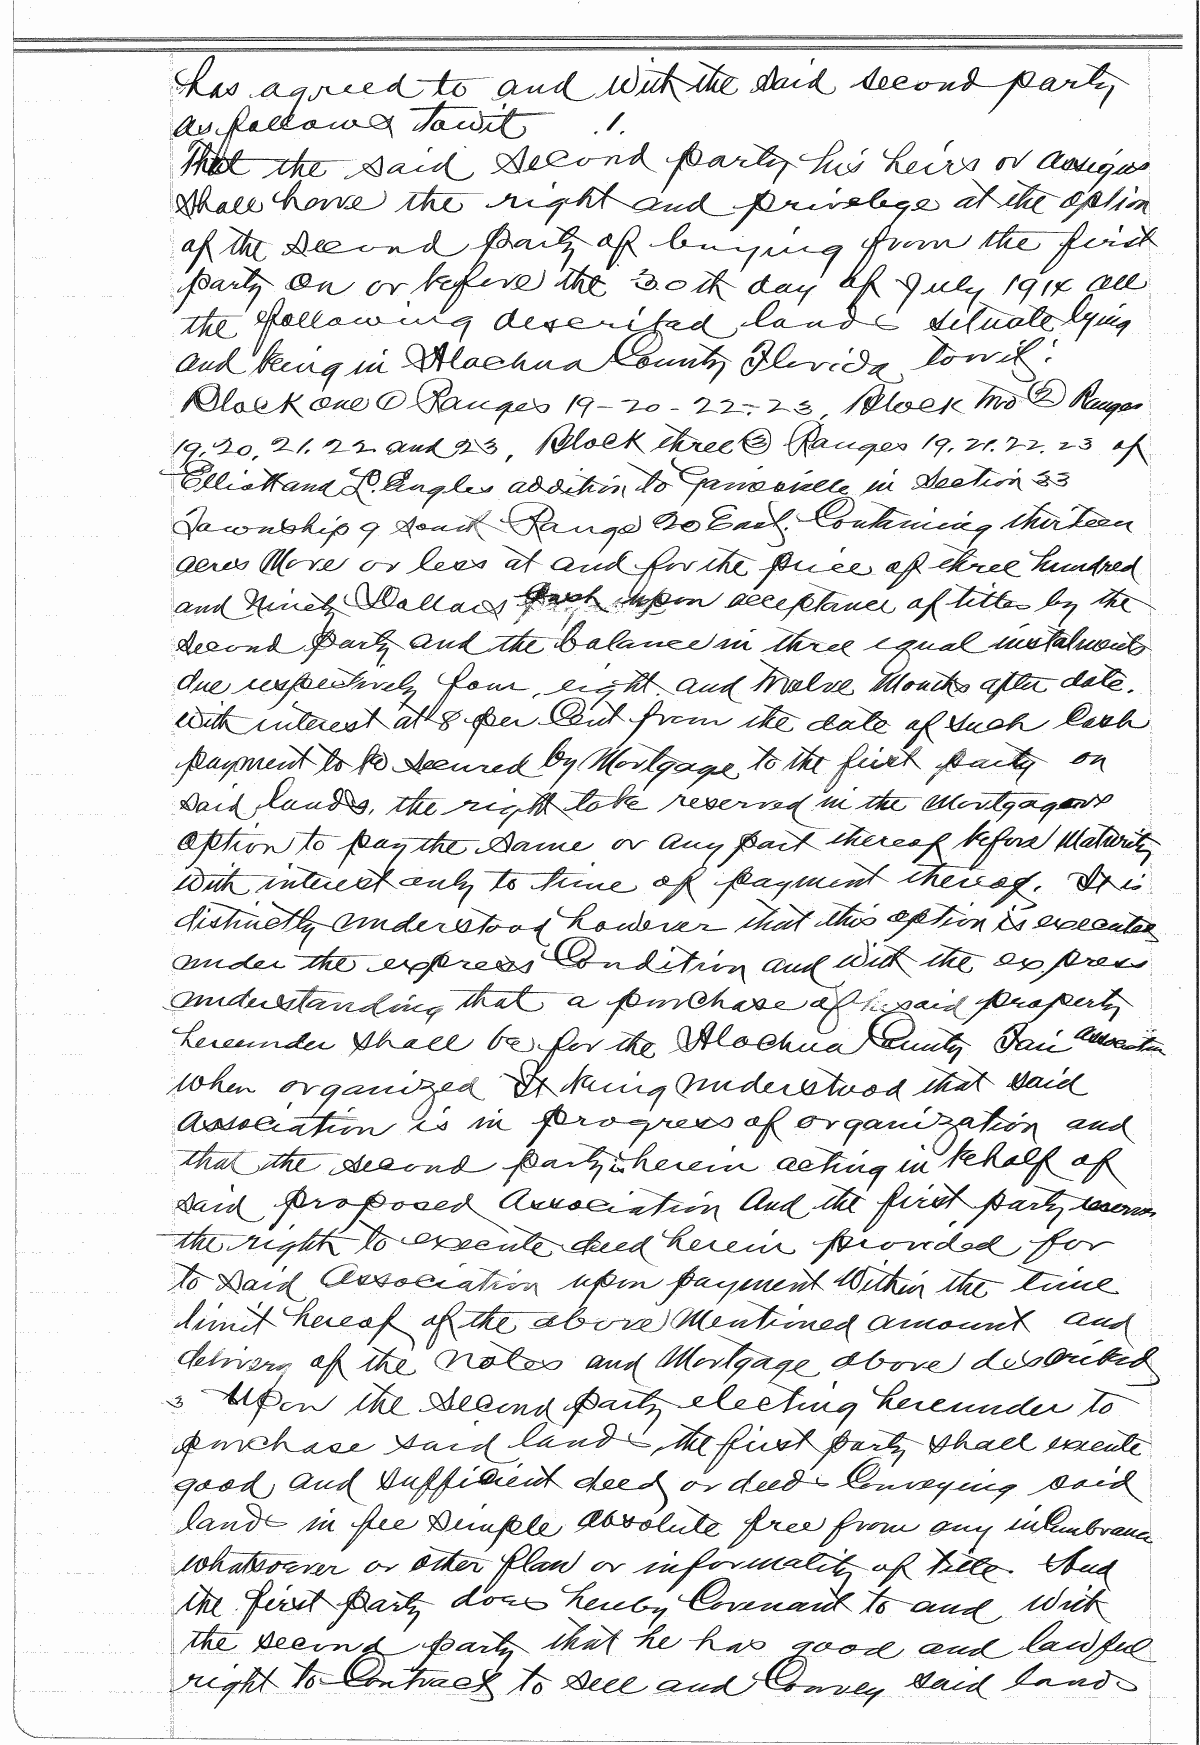 has agreed to and with the said second party
as follows towit .1.
That the said Second party his heirs or assigns
shall have the right and privelege at the option
of the second Party of buying from the first
party on or before the 30th day of July 1914 all
the following described lands situate lying
and being in Alachua County Florida towit:
Block one ① Ranges 19-20-22-23, Block two ② Ranges
19.20.21.22 and 23, Block three ③ Ranges 19.21.22.23 of
Elliott and L. Engles addition to Gainesville in Section 33
Township 9 South Range 20 East. Containing thirteen
acres More or less at and for the price of three hundred
and Ninety Dollars Cash upon acceptance of titles by the
second Party and the balance in three equal instalments
due respectively four, eight and twelve Months after date.
with interest at 8 per Cent from the date of such Cash
payment to be secured by Mortgage to the first party on
said lands, the right to be reserved in the Mortgagors
option to pay the same or any part thereof before Maturity
with interest only to time of payment thereof. It is
distinctly understood however that this option is executed
under the express Condition and with the express
understanding that a purchase of said property
hereunder shall be for the Alachua County Fair Association
when organized It being understood that said
Association is in progress of organization and
that the second party is herein acting in behalf of
said proposed Association And the first party reserves
the right to execute deed herein provided for
to said Association upon payment Within the time
limit hereof of the above Mentioned amount and
delivery of the notes and Mortgage above described
3 Upon the Second party electing hereunder to
purchase said lands, the first party shall execute
good and sufficient deed or deeds Conveying said
lands in fee simple absolute free from any incumbrance
whatsoever or other flaw or informality of title. And
the first Party does hereby Covenant to and with
the second party that he has good and lawful
right to Contract to sell and Convey said lands